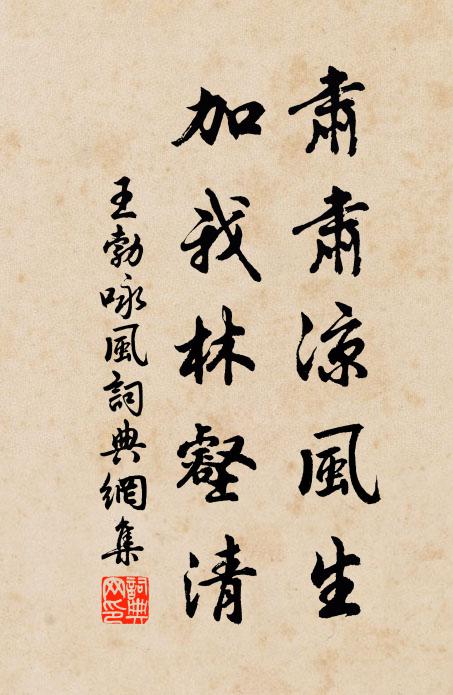 肅肅涼風生
加我林壑清
王勃咏風詞典網集
詞典網印